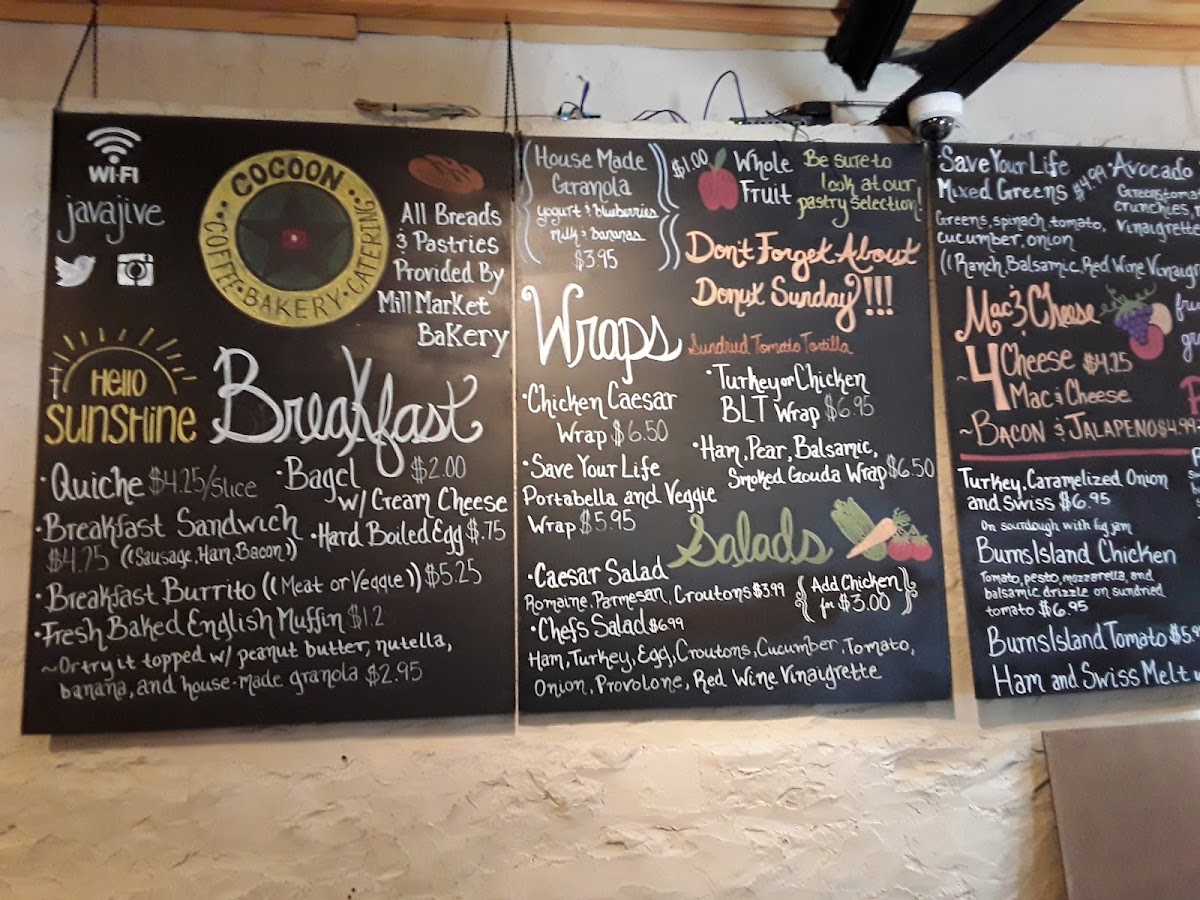 WI-FI
javajive
COCOON
COFFEE • BAKERY • CATERING
All Breads
& Pastries
Provided By
Mill Market
Bakery
Hello
Sunshine
Breakfast
• Quiche $4.25/slice
• Breakfast Sandwich
$4.75 ((Sausage, Ham, Bacon))
• Bagel $2.00
w/ Cream Cheese
• Hard Boiled Egg $.75
• Breakfast Burrito ((Meat or Veggie)) $5.25
• Fresh Baked English Muffin $1.2
~Or try it topped w/ peanut butter, nutella,
banana, and house-made granola $2.95
House Made
Granola
yogurt & blueberries
milk & bananas
$3.95
$1.00 Whole
Fruit
Be sure to
look at our
pastry selection!
Don't Forget About
Donut Sunday!!!
Wraps
Sundried Tomato Tortilla
• Chicken Caesar
Wrap $6.50
• Save Your Life
Portabella and Veggie
Wrap $5.95
• Turkey or Chicken
BLT Wrap $6.95
• Ham, Pear, Balsamic,
Smoked Gouda Wrap $6.50
Salads
• Caesar Salad
Romaine, Parmesan, Croutons $3.99
Add Chicken
for $3.00
• Chefs Salad $6.99
Ham, Turkey, Egg, Croutons, Cucumber, Tomato,
Onion, Provolone, Red Wine Vinaigrette
Save Your Life
Mixed Greens $4.99
Greens, spinach, tomato,
cucumber, onion
((Ranch, Balsamic, Red Wine Vinaig
• Avocado
Vinaigrette
Mac & Cheese
~4 Cheese $4.25
Mac & Cheese
~Bacon & Jalapeno $4.99
Turkey, Caramelized Onion
and Swiss $6.95
On sourdough with fig jam
BurnsIsland Chicken
Tomato, pesto, mozzarella, and
balsamic drizzle on sundried
tomato $6.95
BurnsIsland Tomato $5.
Ham and Swiss Melt